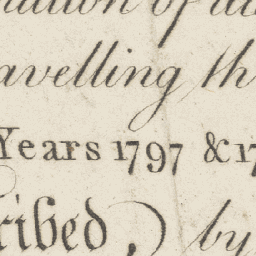 of
avelling th
Years 1797 & 17
ribed, by